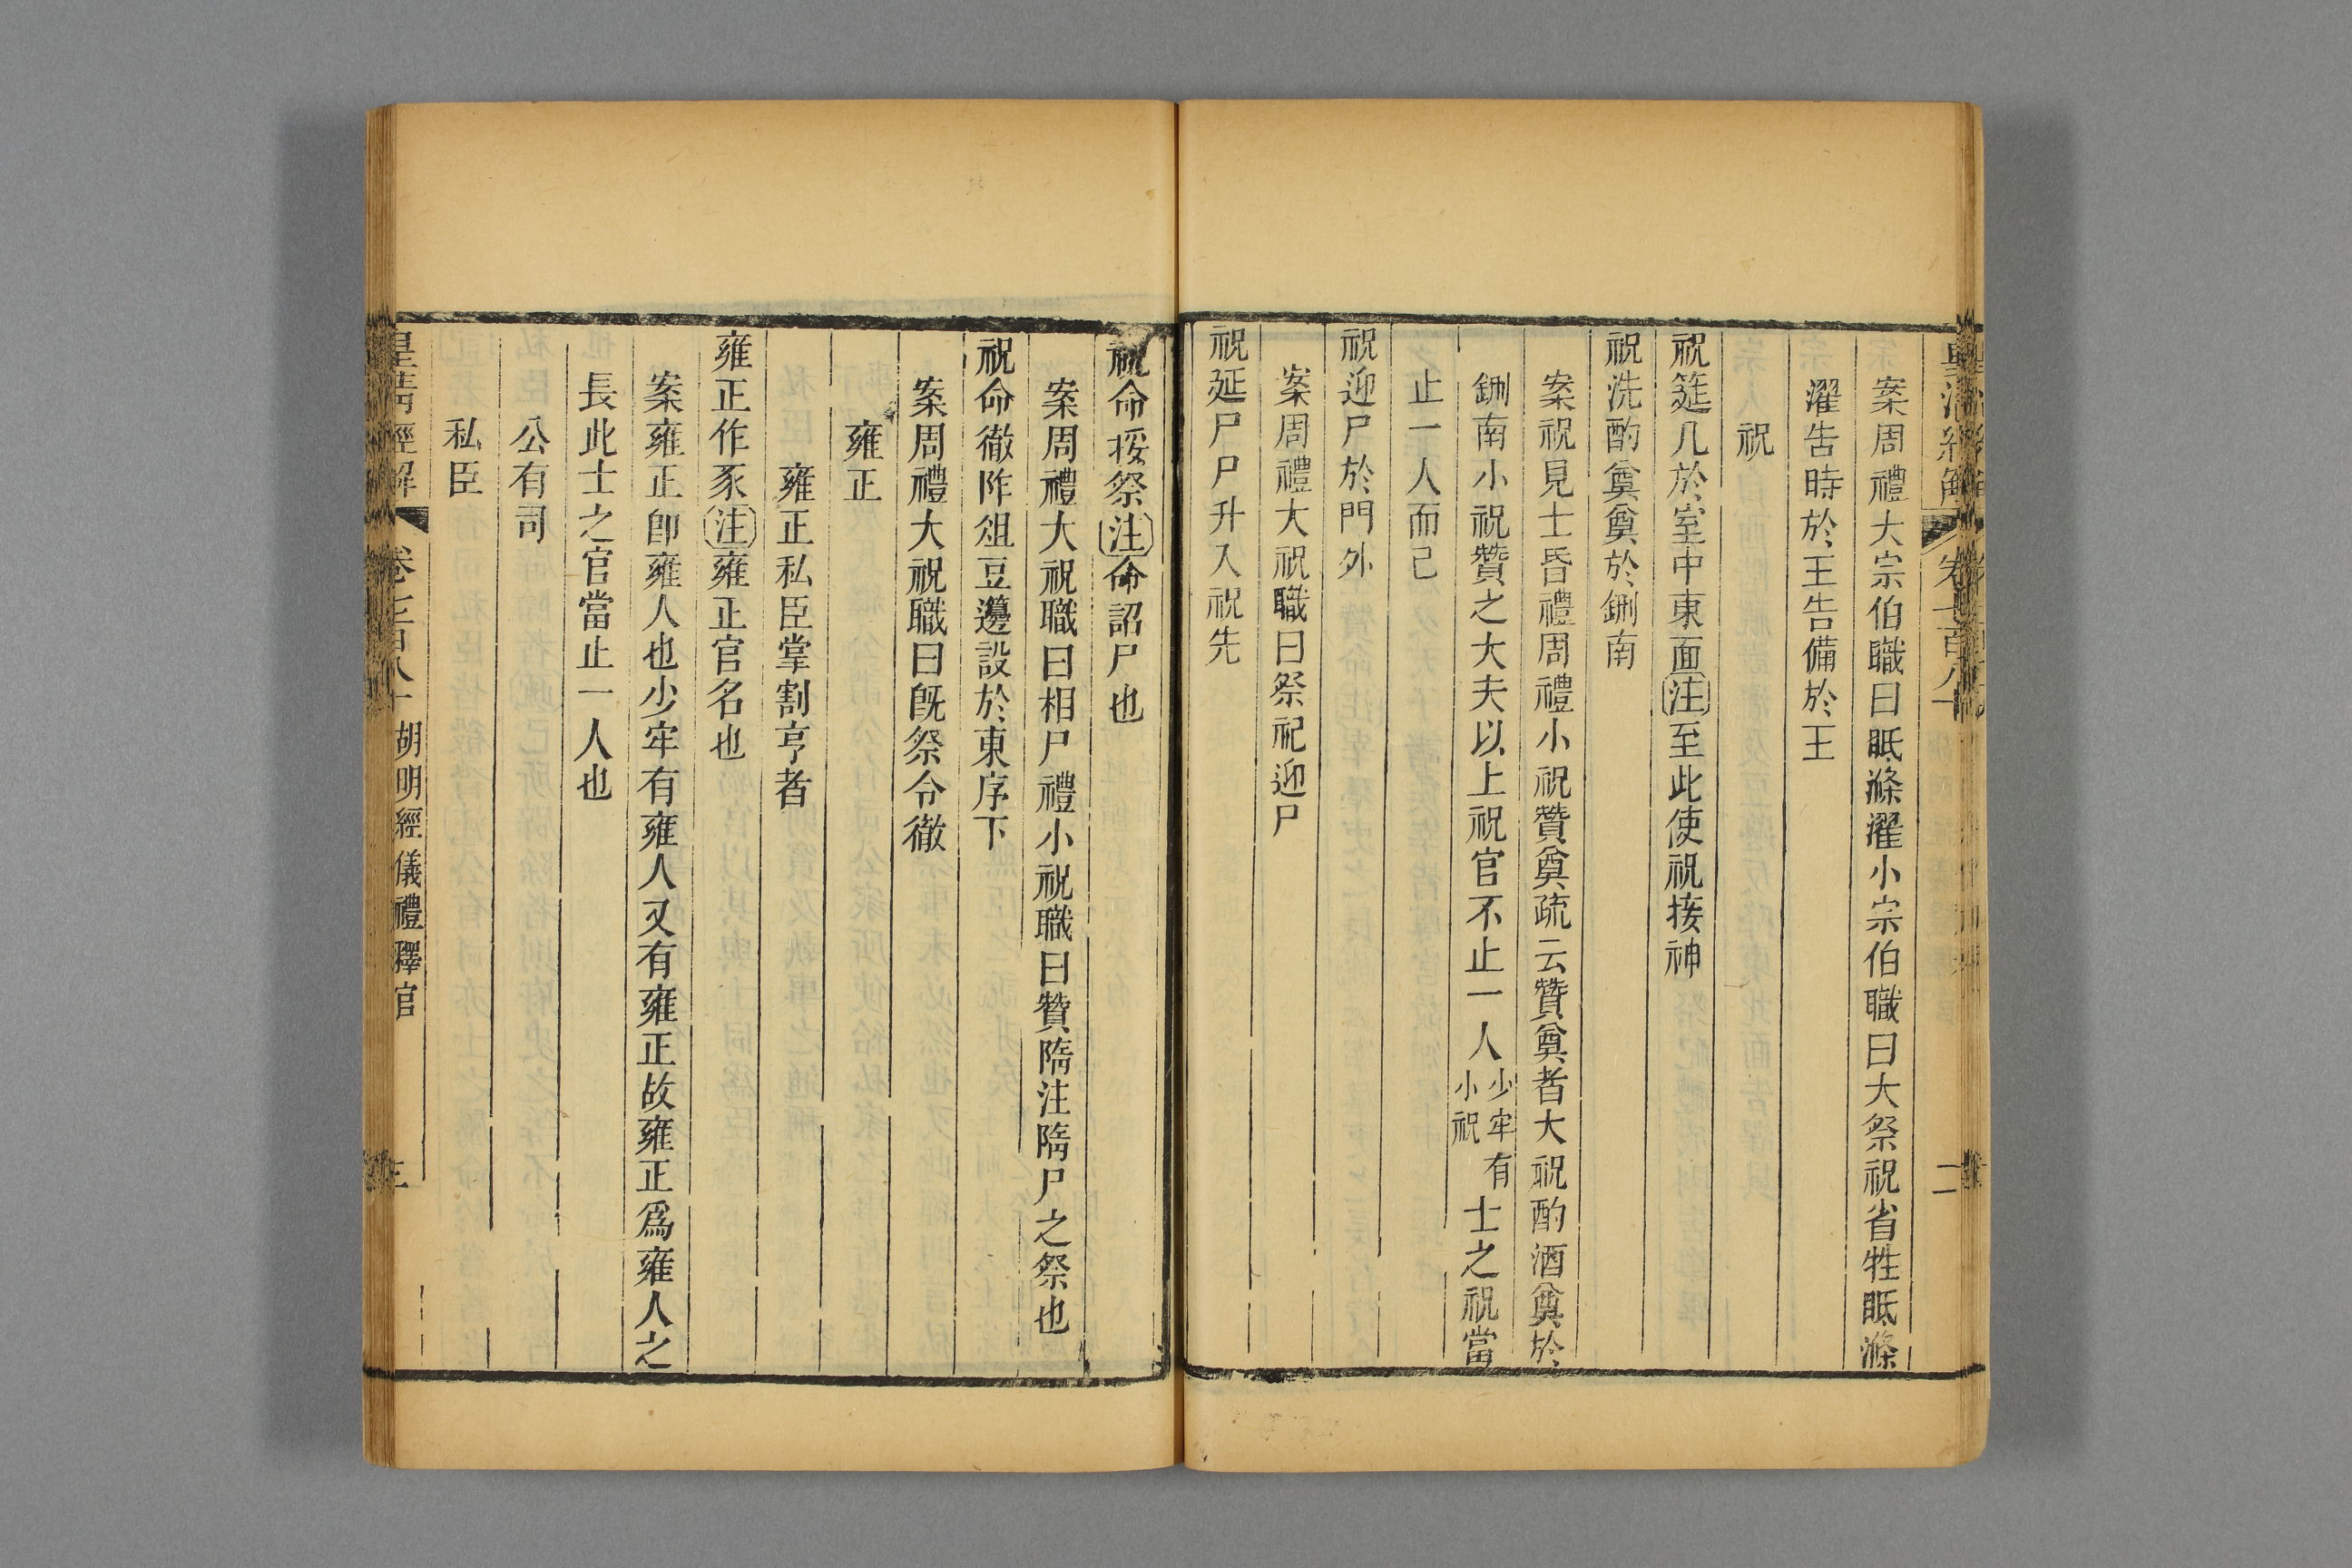 案周禮大宗伯職曰眡滌濯小宗伯職曰大祭祀省牲眡滌
濯告時於王告備於王
祝
祝筵几於室中東面注至此使祝接神
祝洗酌奠奠於鉶南
案祝見士昏禮周禮小祝贊奠疏云贊奠者大祝酌酒奠於
鉶南小祝贊之大夫以上祝官不止一人少牢有小祝士之祝當
止一人而已
祝迎尸於門外
案周禮大祝職曰祭祀迎尸
祝延尸尸升入祝先
祝命挼祭注命詔尸也
案周禮大祝職曰相尸禮小祝職曰贊隋注隋尸之祭也
祝命徹阼俎豆籩設於東序下
案周禮大祝職曰旣祭令徹
雍正
雍正私臣掌割亨者
雍正作豕注雍正官名也
案雍正卽雍人也少牢有雍人又有雍正故雍正爲雍人之
長此士之官當止一人也
公有司
私臣
皇清經解 胡明經儀禮釋官 三